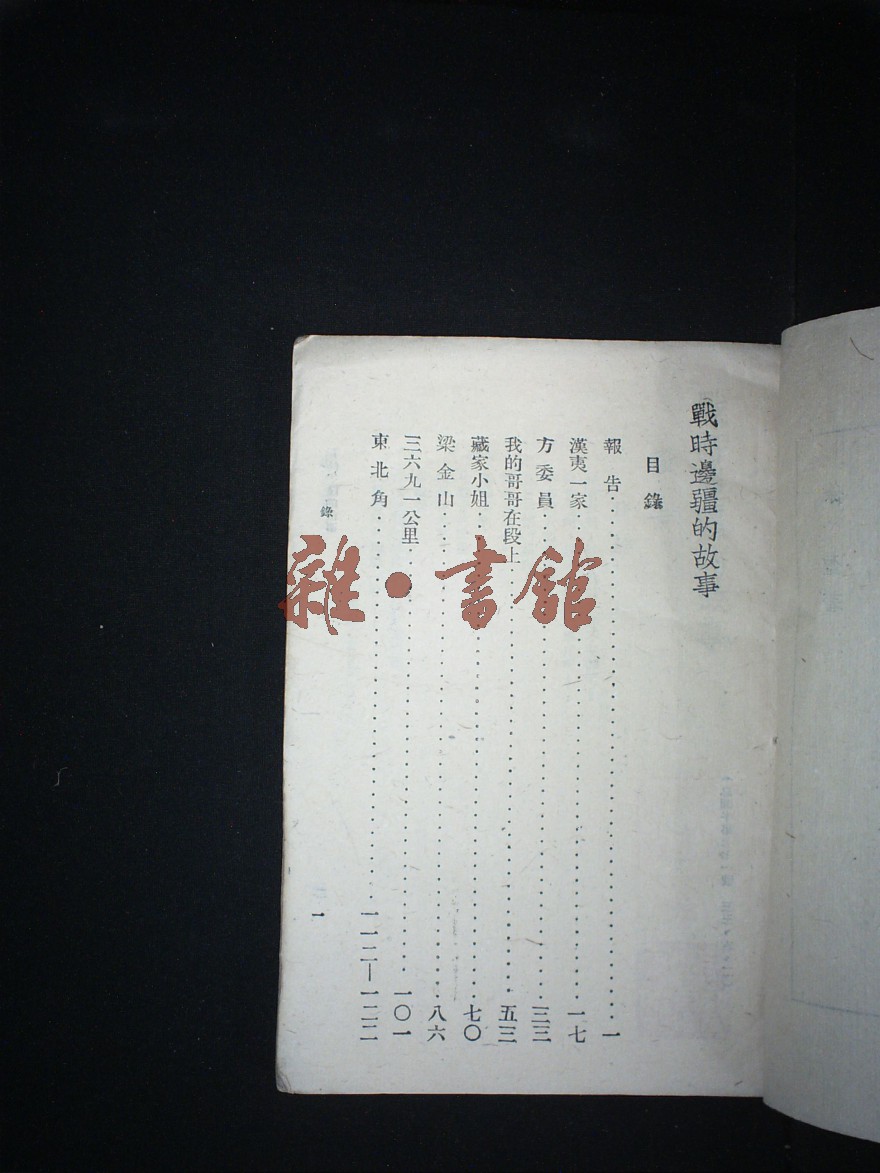 戰時邊疆的故事
目錄
報告⋯⋯⋯⋯⋯⋯⋯⋯⋯⋯⋯⋯一
漢夷一家⋯⋯⋯⋯⋯⋯⋯⋯⋯⋯⋯⋯一七
方委員⋯⋯⋯⋯⋯⋯⋯⋯⋯⋯⋯⋯三三
我的哥哥在段上⋯⋯⋯⋯⋯⋯⋯⋯⋯⋯⋯⋯五三
藏家小姐⋯⋯⋯⋯⋯⋯⋯⋯⋯⋯⋯⋯七〇
梁金山⋯⋯⋯⋯⋯⋯⋯⋯⋯⋯⋯⋯八六
三六九一公里⋯⋯⋯⋯⋯⋯⋯⋯⋯⋯⋯⋯一〇一
東北角⋯⋯⋯⋯⋯⋯⋯⋯⋯⋯⋯⋯一一二—一二二
錄
一
雜·書館